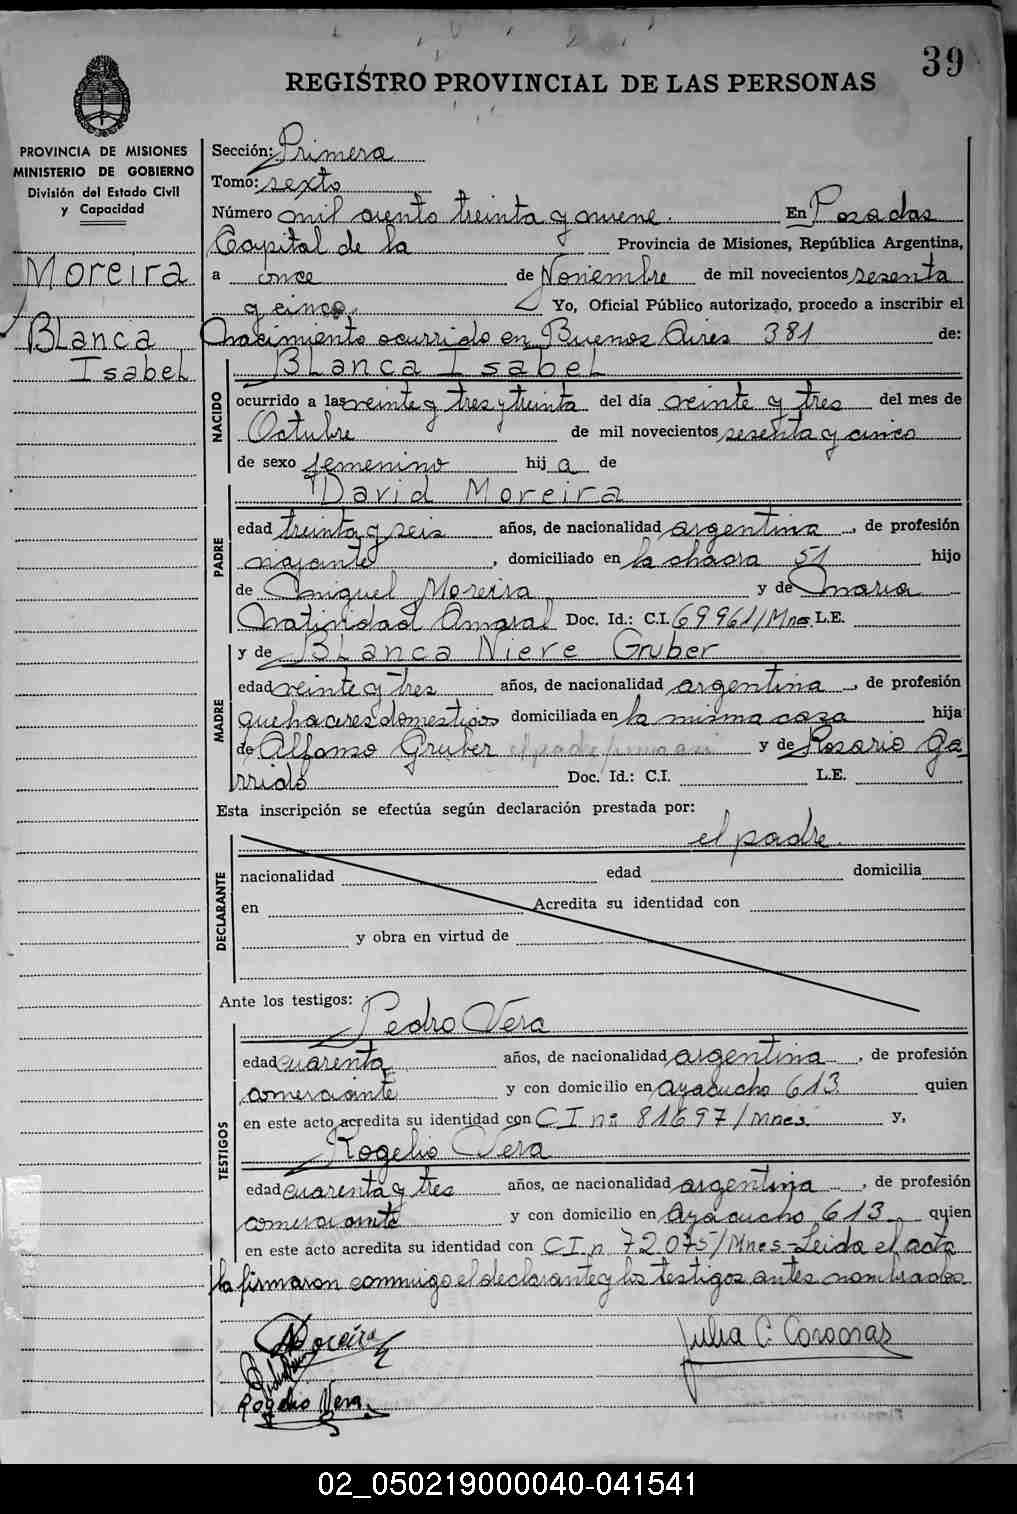 39
REGISTRO PROVINCIAL DE LAS PERSONAS
PROVINCIA DE MISIONES
MINISTERIO DE GOBIERNO
División del Estado Civil
y Capacidad
Moreira
Blanca
Isabel
Sección: Primera
Tomo: sexto
Número mil ciento treinta y nueve. En Posadas
Capital de la Provincia de Misiones, República Argentina,
a once de Noviembre de mil novecientos sesenta
y cinco. Yo, Oficial Público autorizado, procedo a inscribir el
nacimiento ocurrido en Buenos Aires 381 de:
NACIDO
Blanca Isabel
ocurrido a las veinte y tres y treinta del día veinte y tres del mes de
Octubre de mil novecientos sesenta y cinco
de sexo femenino hija de
PADRE
David Moreira
edad treinta y seis años, de nacionalidad argentina, de profesión
viajante, domiciliado en la chacra 51 hijo
de Miguel Moreira y de Maria
Natividad Amaral Doc. Id.: C.I. 69961/Mnes. L.E.
MADRE
y de Blanca Nieve Gruber
edad veinte y tres años, de nacionalidad argentina, de profesión
quehaceres domesticos domiciliada en la misma casa hija
de Alfonso Gruber y de Rosario Ga-
rrido Doc. Id.: C.I. L.E.
Esta inscripción se efectúa según declaración prestada por:
DECLARANTE
el padre.
nacionalidad edad domicilia
en Acredita su identidad con
y obra en virtud de
Ante los testigos:
TESTIGOS
Pedro Vera
edad cuarenta años, de nacionalidad argentina, de profesión
comerciante y con domicilio en ayacucho 613 quien
en este acto acredita su identidad con CI nº 81697/Mnes. y,
Rogelio Vera
edad cuarenta y tres años, de nacionalidad argentina, de profesión
comerciante y con domicilio en Ayacucho 613 quien
en este acto acredita su identidad con CI n 72075/Mnes - Leida el acta
la firmaron conmigo el declarante y los testigos antes nombrados
Moreira
Julia C. Coronas
Rogelio Vera
02_050219000040-041541